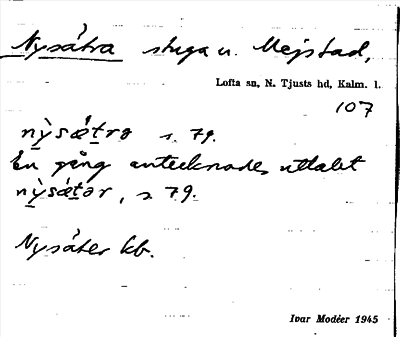 Nysätra stuga u. Mejstad,
Lofta sn, N. Tjusts hd, Kalm. l.
107
nỳsǽtrɑ s. 79.
En gång antecknades uttalet
nỳsǽtər, s. 79.
Nysäter kb.
Ivar Modéer 1945